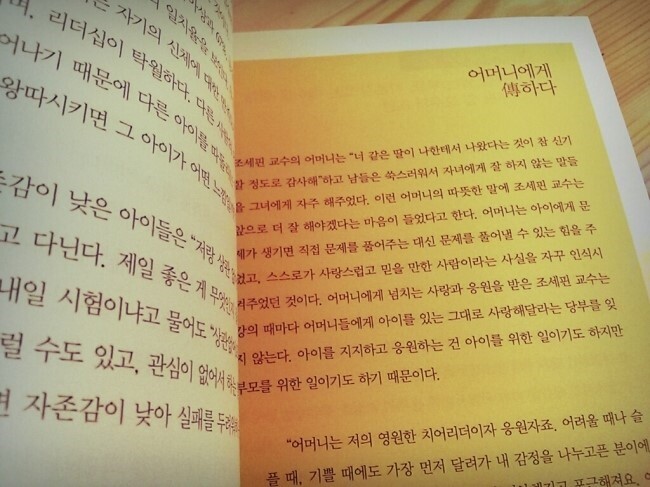 며, 리더십이 탁월하다. 다른
어나기 때문에 다른 아이를
왕따시키면 그 아이가 어떤
존감이 낮은 아이들은 “저랑 상관
고 다닌다. 제일 좋은 게 무엇인지
내일 시험이냐고 물어도 “상관없어
럴 수도 있고, 관심이 없어서 하는
면 자존감이 낮아 실패를
어머니에게
傳하다
조세핀 교수의 어머니는 “너 같은 딸이 나한테서 나왔다는 것이 참 신기
할 정도로 감사해”하고 남들은 쑥스러워서 자녀에게 잘 하지 않는 말들
을 그녀에게 자주 해주었다. 이런 어머니의 따뜻한 말에 조세핀 교수는
앞으로 더 잘 해야겠다는 마음이 들었다고 한다. 어머니는 아이에게 문
제가 생기면 직접 문제를 풀어주는 대신 문제를 풀어낼 수 있는 힘을 주
었고, 스스로가 사랑스럽고 믿을 만한 사람이라는 사실을 자꾸 인식시
켜주었던 것이다. 어머니에게 넘치는 사랑과 응원을 받은 조세핀 교수는
강의 때마다 어머니들에게 아이를 있는 그대로 사랑해달라는 당부를 잊
지 않는다. 아이를 지지하고 응원하는 건 아이를 위한 일이기도 하지만
부모를 위한 일이기도 하기 때문이다.
“어머니는 저의 영원한 치어리더이자 응원자죠. 어려울 때나 슬
플 때, 기쁠 때에도 가장 먼저 달려가 내 감정을 나누고픈 분이에